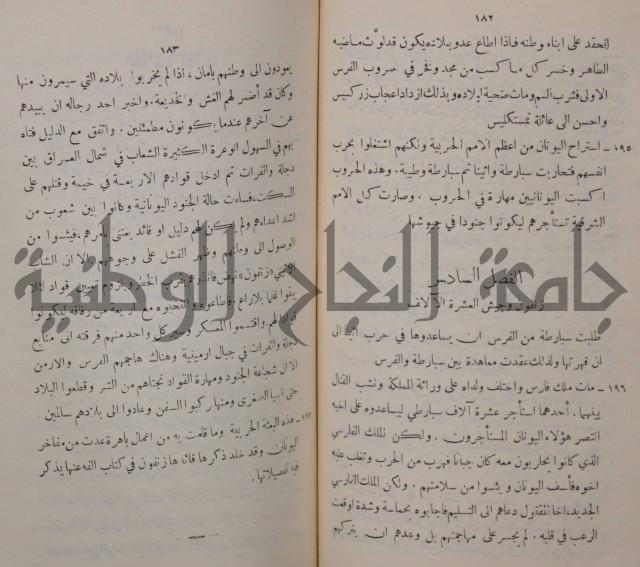 ١٨٢
الحقد على ابناء وطنه فاذا اطاع عدو بلاده يكون قد لوّث ماضيه
الطاهر وخسر كل ما كسب من مجد وفخر في حروب الفرس
الاولى فشرب السم ومات ضحية لبلاده وبذلك ازداد اعجاب زركيس
واحسن الى عائلة تمستكليس
١٩٥ ـ استراح اليونان من اعظم الامم الحربية ولكنهم اشتغلوا بحرب
انفسهم فتحاربت سبارطة واثينا ثم سبارطة وطيبة. وهذه الحروب
اكسبت اليونانيين مهارة في الحروب. وصارت كل الامم
الشرقية تستأجرهم ليكونوا جنودا في جيوشها
الفصل السادس
زنفون وجيش العشرة الآلاف
طلبت سبارطة من الفرس ان يساعدوها في حرب اثينا الى
ان قهرتها ولذلك عقدت معاهدة بين سبارطة والفرس
١٩٦ ـ مات ملك فارس واختلف ولداه على وراثة المملكة ونشب القتال
بينهما. أحدهما استأجر عشرة آلاف سبارطي ليساعدوه على اخيه
انتصر هؤلاء اليونان المستأجرون. ولكن الملك الفارسي
الذي كانوا يحاربون معه كان جبانا فهرب من الحرب وتغلب عليه
اخوه فأسف اليونان ويئسوا من سلامتهم. ولكن الملك الفارسي
الجديد، اخا المقتول دعاهم الى التسليم فاجابوه بحماسة وشدة اوقعت
الرعب في قلبه. لم يجسر على مهاجمتهم بل وعدهم ان يتركهم
١٨٣
يعودون الى وطنهم بامان، اذا لم يخربوا بلاده التي سيمرون منها
وكان قد أضمر لهم الغش والخديعة. واخبر احد رجاله ان يبيدهم
عن آخرهم عندما يكونون مطمئنين. واتفق مع الدليل فتاه
بهم في السهول الوعرة الكثيرة الشعاب في شمال العراق بين
دجلة والفرات ثم ادخل قوادهم الاربعة في خيمة وقتلهم على
السكت، فساءت حالة الجنود اليونانية وكانوا بين شعوب من
اشد اعدائهم ولم يكن لهم دليل او قائد يعتني بأمرهم. فيئسوا من
الوصول الى وطنهم وظهر الفشل على وجوههم الا ان الشاب
الاثيني «زنفون» نهض
قوادا لهم. واقتسموا العسكر وسير كل واحد منهم فرقته الى منابع
دجلة والفرات في جبال ارمينية وهناك هاجمهم الفرس والارمن
الا ان شجاعة الجنود ومهارة القواد نجتاهم من الشر وقطعوا البلاد
حتى آسيا الصغرى ومنها ركبوا السفن وعادوا الى بلادهم سالمين
١٩٧ ـ هذه البعثة الحربية وما قامت به من اعمال باهرة عدت من مفاخر
اليونان وقد خلد ذكرها قائدها زنفون في كتاب الفه عنها يذكر
فيه تفصيلاتها.
جامعة النجاح الوطنية